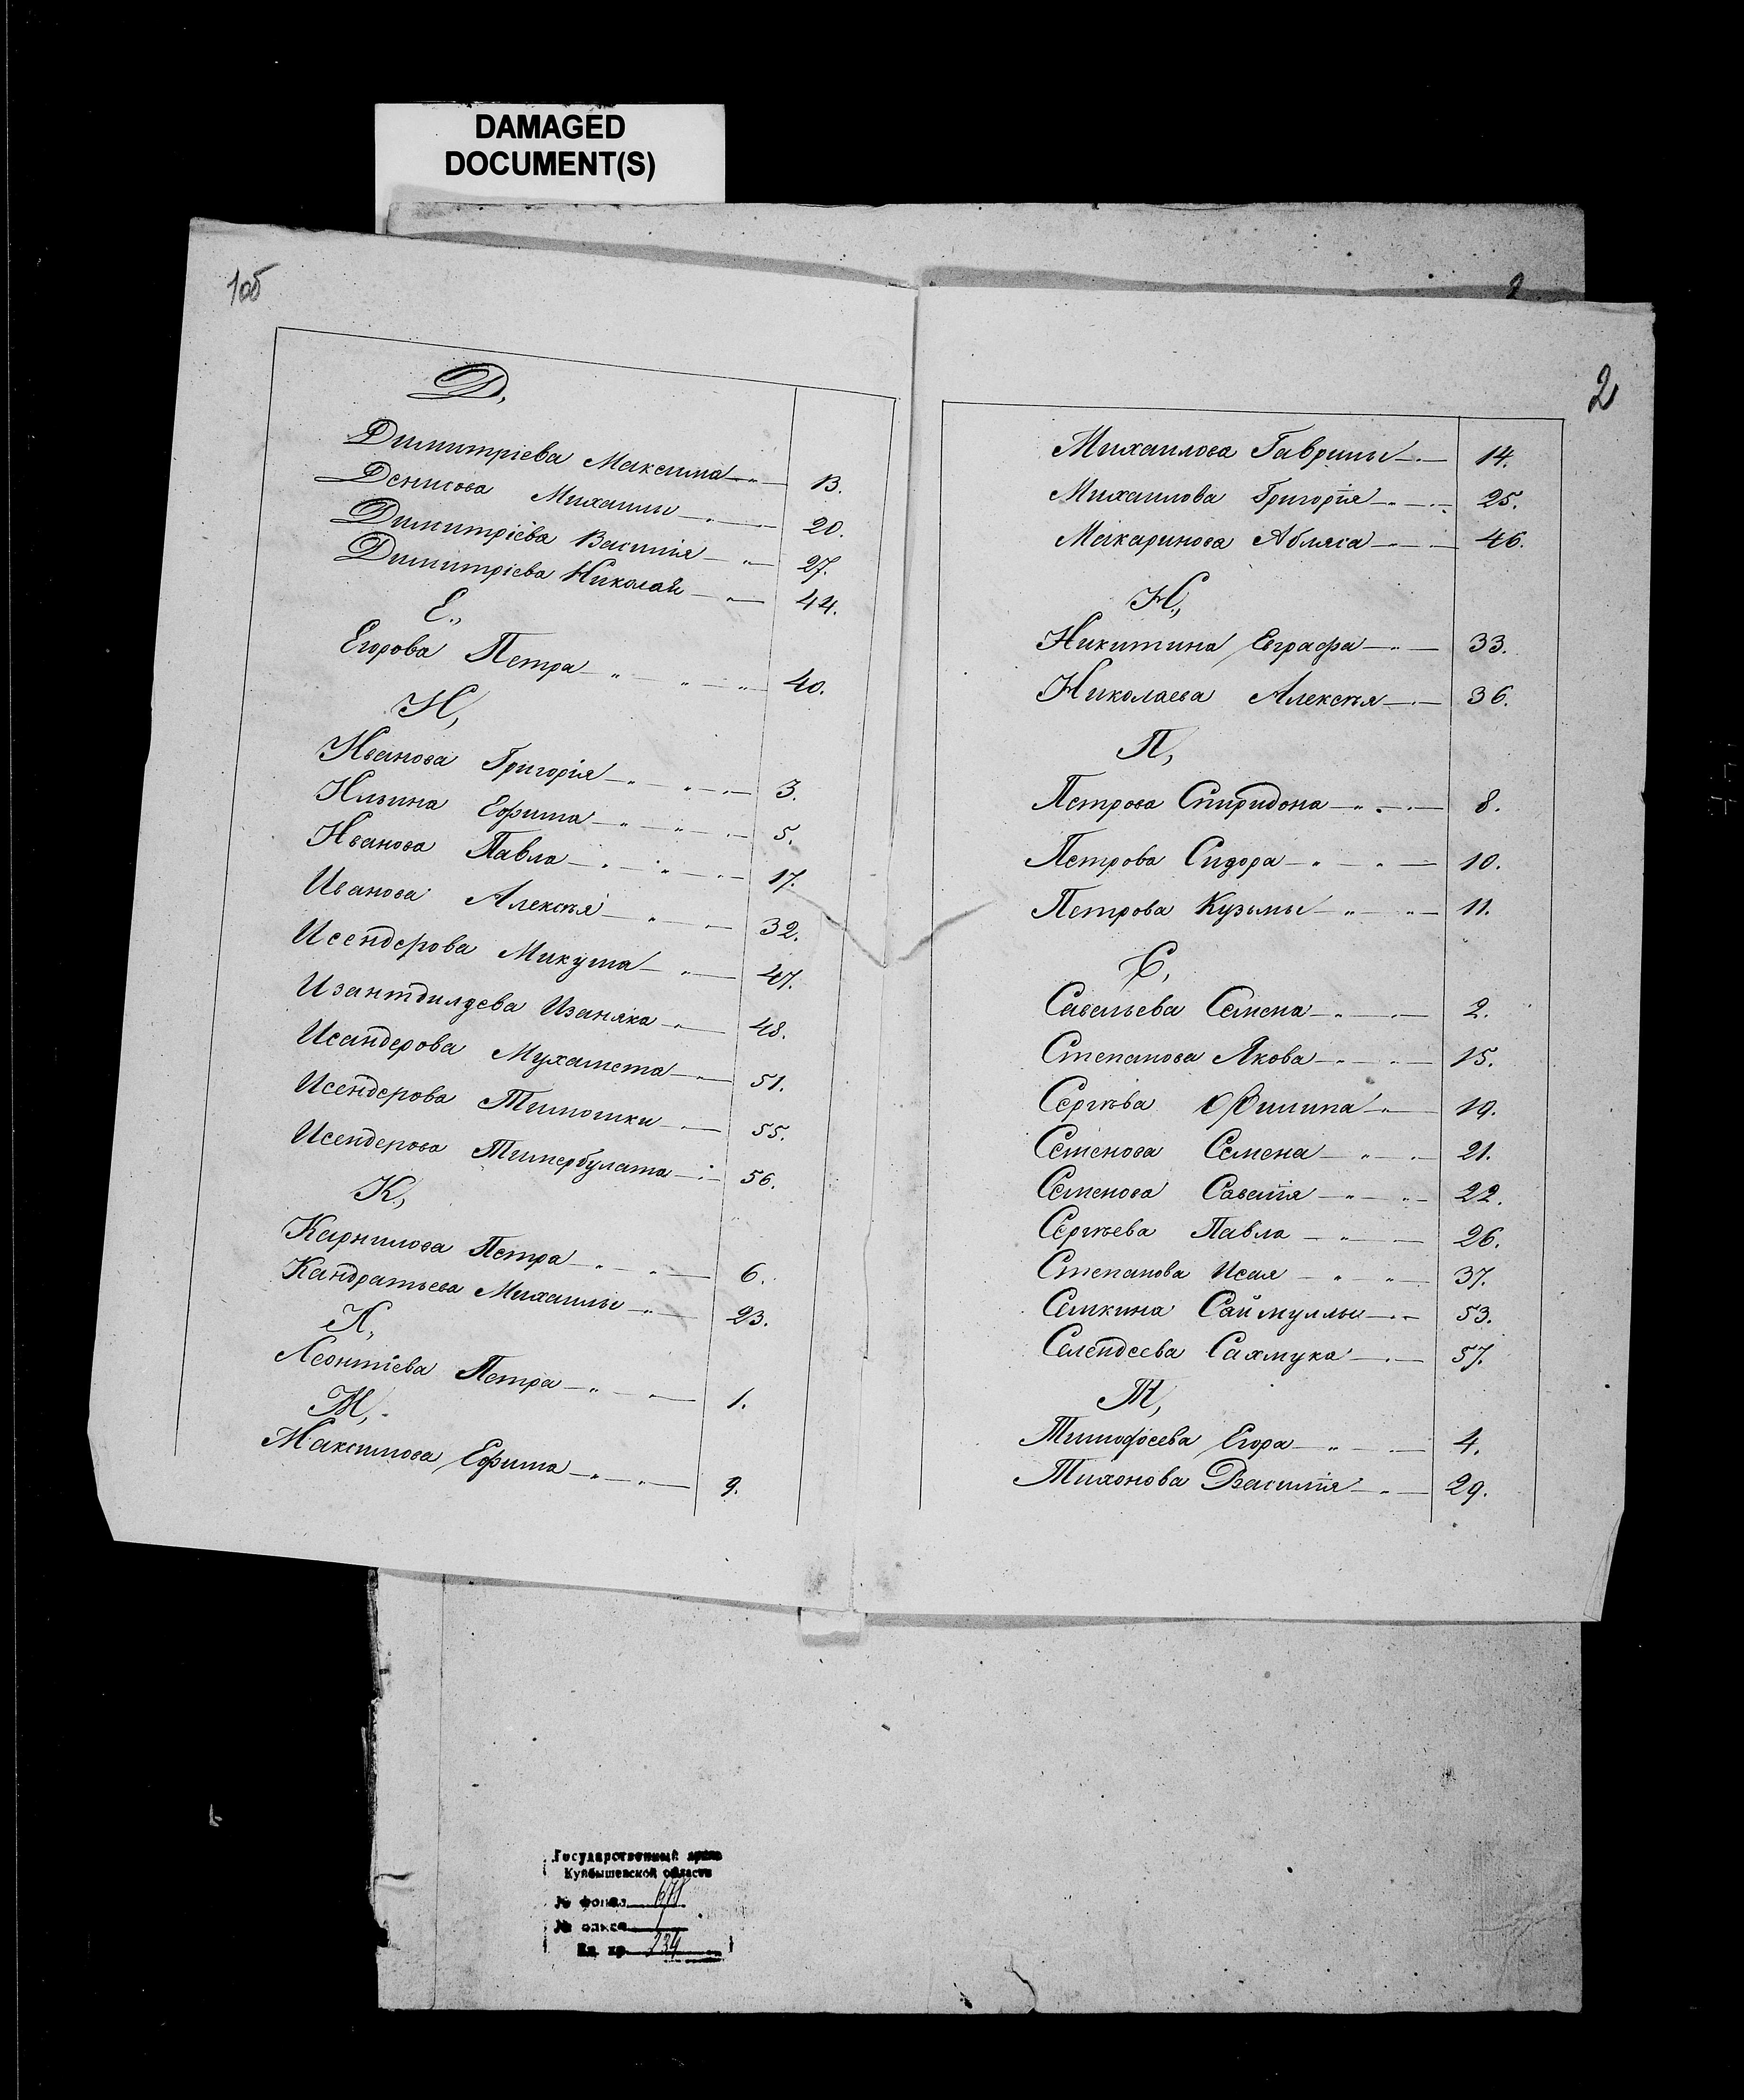 DAMAGED
DOCUMENT(S)
1об
Д,
Димитріева Максима 13.
Денисова Михаилы 20.
Димитріева Василія 27.
Димитріева Николай 44.
Е,
Егорова Петра 40.
И,
Иванова Григорія 3.
Ильина Ефима 5.
Иванова Павла 17.
Иванова Алексѣя 32.
Исендерова Микуша 47.
Изантдилдева Изаняка 48.
Исандерова Мухамета 51.
Исендерова Тимошки 55.
Исендерова Тимербулата 56.
К,
Карнилова Петра 6.
Кандратьева Михаилы 23.
Л,
Леонтіева Петра 1.
М,
Максимова Ефима 9.
2
2
Михаилова Гаврилы 14.
Михаилова Григорія 25.
Макаринова Абляса 46.
Н,
Никитина Евграфа 33.
Николаева Алексѣя 36.
П,
Петрова Спиридона 8.
Петрова Сидора 10.
Петрова Кузьмы 11.
С,
Савельева Семена 2.
Степанова Якова 15.
Сергѣва Филипа 19.
Семенова Семена 21.
Семенова Савелія 22.
Сергѣева Павла 26.
Степанова Исая 37.
Семкина Саймуллы 53.
Селендеева Сахмука 57.
Т,
Тимофеева Егора 4.
Тихонова Василія 29.
Государственный архив
Куйбышевской области
№ фонда
№ описи 1
Ед. хр. 234